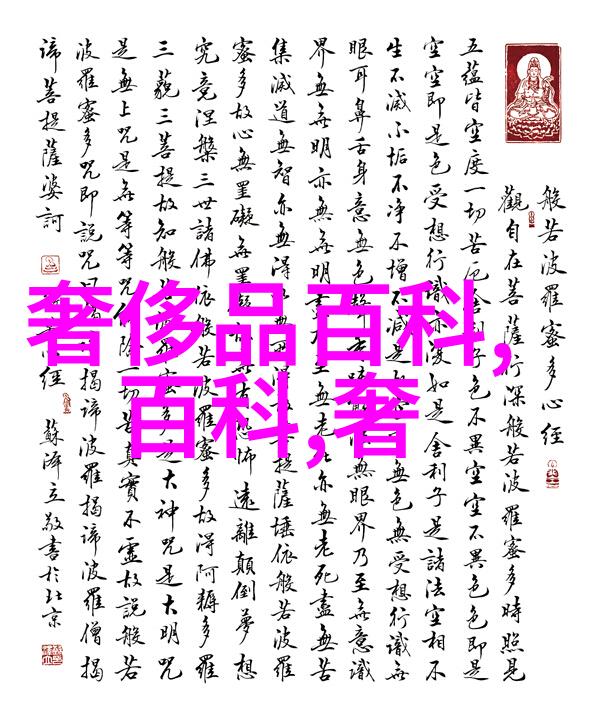 奢侈品百科,
百科,奢
般若波羅蜜多心經
觀自在菩薩行深般若波羅蜜多時照見
五蘊皆空度一切苦厄舍利子色不異空空不異色色即是
空空即是色受想行識亦復如是舍利子是諸法空相不
生不滅不垢不净不增不減是無色無受想行識無
眼耳鼻舌身意無色聲無眼界乃至無意識
界無無明亦無無明盡至無老死亦無老死盡無苦
集滅道無智亦無得提薩埵依般若波羅
蜜多故心無罣礙無罣礙恐怖遠離顛倒夢想
究竟涅槃三世諸佛依般若波羅蜜多故得阿耨多羅
三藐三菩提故知般若蜜多是大神咒是大明咒
是無上咒是無等等咒除一切苦真實不虛故說般若
波羅蜜多咒即說咒曰揭諦波羅揭諦波羅僧揭
諦菩提薩婆訶
經
蘇澤立敬書於北京